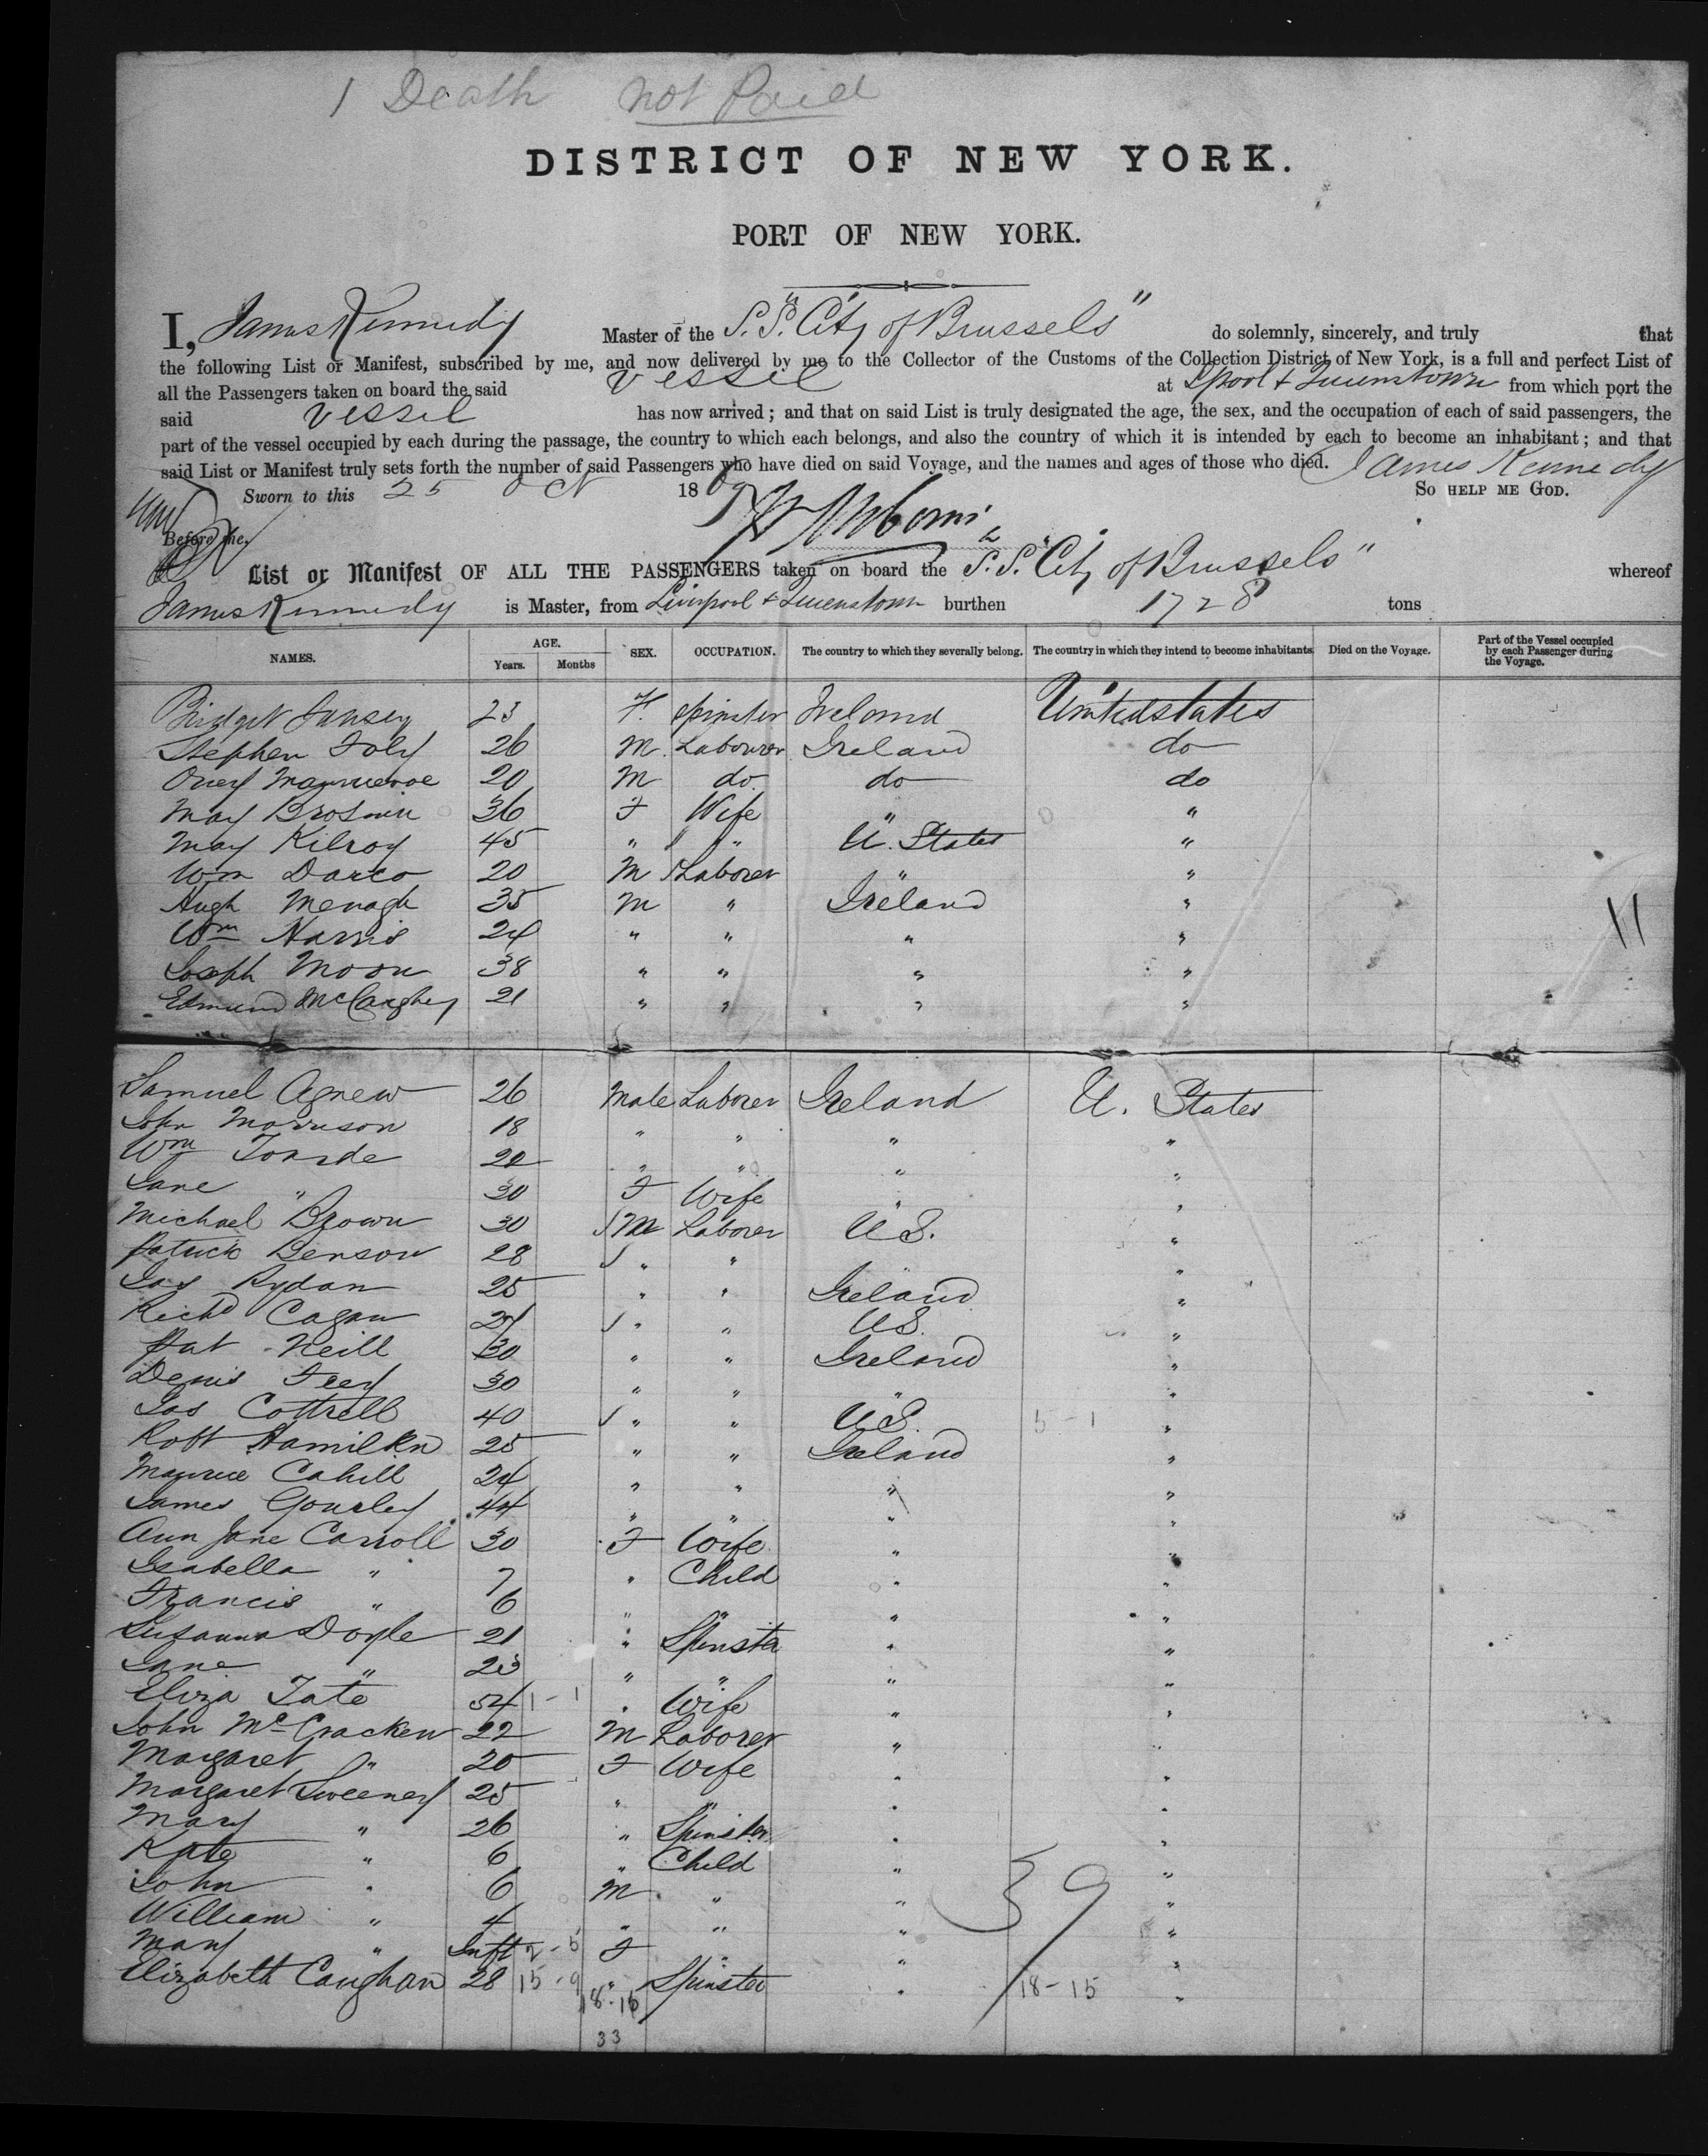 1 Death not Paid
DISTRICT OF NEW YORK.
PORT OF NEW YORK.
I, James Kennedy Master of the S.S. "City of Brussels" do solemnly, sincerely, and truly that
the following List or Manifest, subscribed by me, and now delivered by me to the Collector of the Customs of the Collection District of New York, is a full and perfect List of
all the Passengers taken on board the said Vessel at Lpool & Queenstown from which port the
said Vessel has now arrived; and that on said List is truly designated the age, the sex, and the occupation of each of said passengers, the
part of the vessel occupied by each during the passage, the country to which each belongs, and also the country of which it is intended by each to become an inhabitant; and that
said List or Manifest truly sets forth the number of said Passengers who have died on said Voyage, and the names and ages of those who died. James Kennedy
Sworn to this 25 Oct 1869 SO HELP ME GOD.
Before me,
List or Manifest OF ALL THE PASSENGERS taken on board the S.S. "City of Brussels" whereof
James Kennedy is Master, from Liverpool & Queenstown burthen 1728 tons
NAMES. AGE. Years. Months SEX. OCCUPATION. The country to which they severally belong. The country in which they intend to become inhabitants. Died on the Voyage. Part of the Vessel occupied by each Passenger during the Voyage.
Bridget 23 F. Spinster Ireland United States
Stephen Foly 26 M. Labourer Ireland do
20 M do do do
May Brosnin 36 F Wife " "
May Kilroy 45 " " U. States "
Wm Darco 20 M Laborer " "
Hugh Menagh 35 M " Ireland "
Wm Harris 24 " " " "
Joseph Moon 38 " " " "
Edmund McCaughey 21 " " " "
11
Samuel Agnew 26 Male Laborer Ireland U. States
John Morrison 18 " " " "
Wm Toarde 20 " " " "
Jane " 30 F Wife " "
Michael Brown 30 M Laborer U S. "
Patrick Benson 28 " " "
Jas Rydan 25 " " Ireland "
Richd Cagan 27 " " U S. "
Pat Neill 30 " " Ireland "
Denis Feey 30 " " " "
Jas Cottrell 40 " " U S. 5-1 "
Robt Hamilton 25 " " Ireland "
Maurice Cahill 24 " " " "
James Gourley 44 " " " "
Ann Jane Carroll 30 F Wife " "
Isabella " 7 " Child " "
Francis " 6 " " " "
Susanna Doyle 21 " Spinster " "
Jane " 23 " " " "
Eliza Tate 54 1-1 " Wife " "
John McCracken 22 M Laborer " "
Margaret " 20 F Wife " "
Margaret Sweeney 25 " " " "
Mary " 26 " Spinster " "
Kate " 6 " Child " "
John " 6 M " " "
William " 4 " " " "
Mary " Inft 2-5 F " " "
Elizabeth Caughan 28 15-9 " Spinster " 18-15 "
39
18-16
33